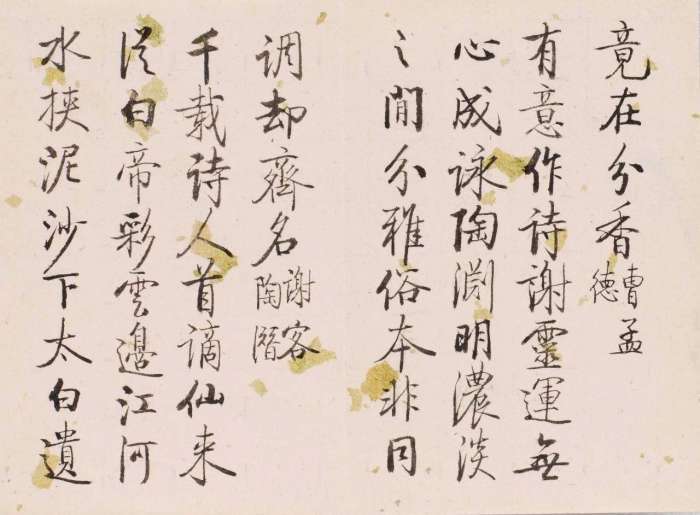 竟在分香曹孟德
有意作詩謝靈運無
心成詠陶淵明濃淡
之間分雅俗本非同
調却齊名謝客陶潛
千載詩人首謫仙来
從白帝彩雲邊江河
水挾泥沙下太白遺